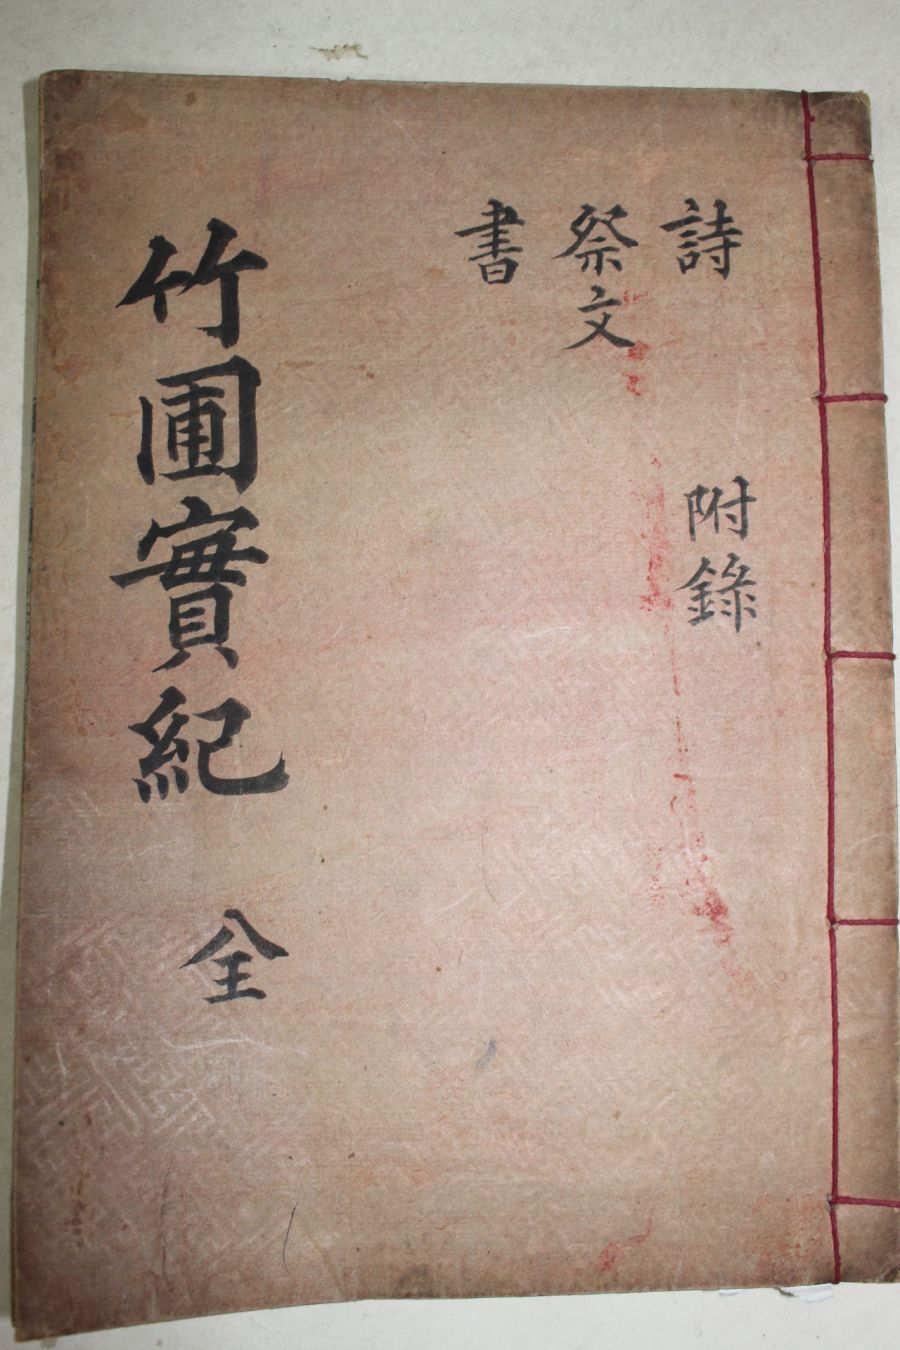 詩 附錄
祭文
書
竹圃實紀 全